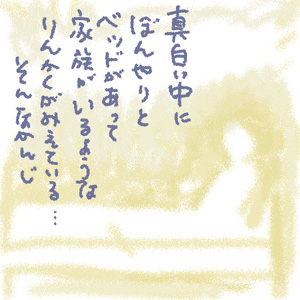 真白い中に
ぼんやりと
ベッドがあって
家族がいるような
りんかくがみえている…
そんなかんじ